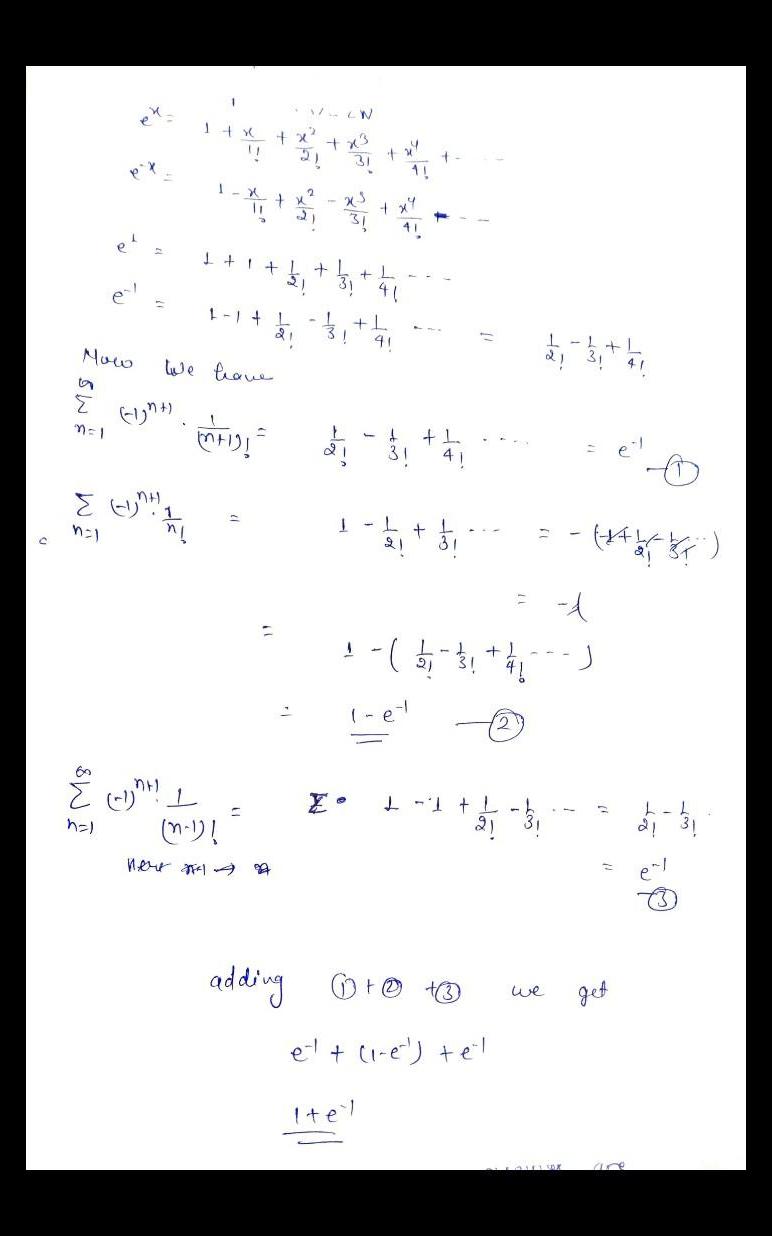 e^x = 1 + x/1! + x²/2! + x³/3! + x⁴/4! + - - - -
e^-x = 1 - x/1! + x²/2! - x³/3! + x⁴/4! - - -
e^1 = 1 + 1 + 1/2! + 1/3! + 1/4! - - -
e^-1 = 1 - 1 + 1/2! - 1/3! + 1/4! - - - = 1/2! - 1/3! + 1/4!
Now We have
∞ Σ n=1 (-1)^n+1 . 1/(n+1)! = 1/2! - 1/3! + 1/4! - - - - = e^-1 — ①
Σ n=1 (-1)^n+1 . 1/n! = 1 - 1/2! + 1/3! - - - = - (-1 + 1/2! - 1/3! - -)
= -1
= 1 - ( 1/2! - 1/3! + 1/4! - - - )
= 1 - e^-1 — ②
∞ Σ n=1 (-1)^n+1 1/(n-1)! = 1 - 1 + 1/2! - 1/3! - - = 1/2! - 1/3!
= e^-1 — ③
adding ① + ② + ③ we get
e^-1 + (1-e^-1) + e^-1
1 + e^-1
are